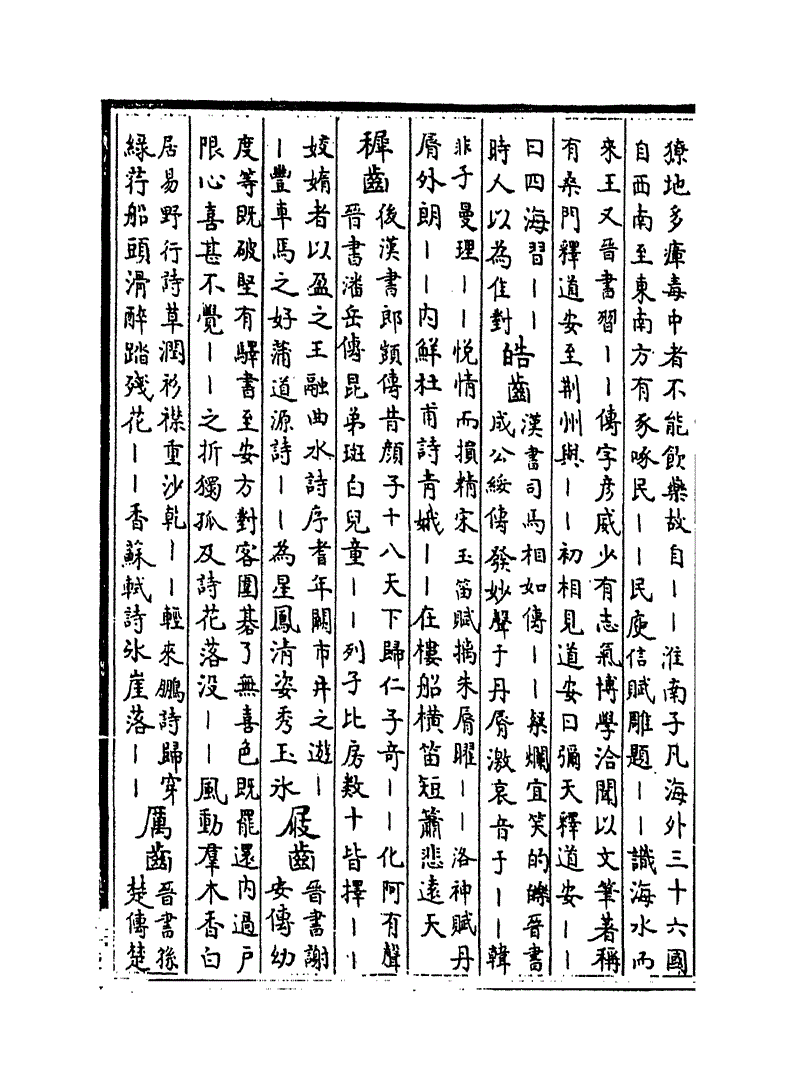 獠地多瘴毒中者不能飲藥故自丨丨淮南子凡海外三十六國
自西南至東南方有豕啄民丨丨民庾信賦雕題丨丨識海水而
來王又晉書習丨丨傳字彥威少有志氣博學洽聞以文筆著稱
有桑門釋道安至荆州與丨丨初相見道安曰彌天釋道安丨丨
曰四海習丨丨
時人以為佳對
皓齒
漢書司馬相如傳丨丨粲爛宜笑的皪晉書
成公綏傳發妙聲于丹脣激哀音于丨丨韓
非子曼理丨丨悅情而損精宋玉笛賦摛朱脣曜丨丨洛神賦丹
脣外朗丨丨内鮮杜甫詩青娥丨丨在樓船橫笛短簫悲遠天
稺齒
後漢書郎顗傳昔顔子十八天下歸仁子奇丨丨化阿有聲
晉書潘岳傳昆弟斑白兒童丨丨列子比房数十皆擇丨丨
姣媠者以盈之王融曲水詩序耆年闕市井之遊丨
丨豐車馬之好蒲道源詩丨丨為星鳳清姿秀玉氷
屐齒
晉書謝
安傳幼
度等既破堅有驛書至安方對客圍碁了無喜色既罷還内過戶
限心喜甚不覺丨丨之折獨孤及詩花落沒丨丨風動羣木香白
居易野行詩草潤衫襟重沙乾丨丨輕來鵬詩歸穿
綠荇船頭滑醉踏殘花丨丨香蘇軾詩氷崖落丨丨
厲齒
晉書孫
楚傳楚